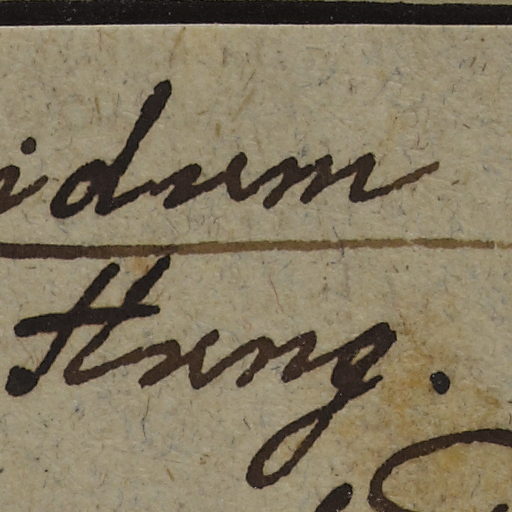 idum
Hung.